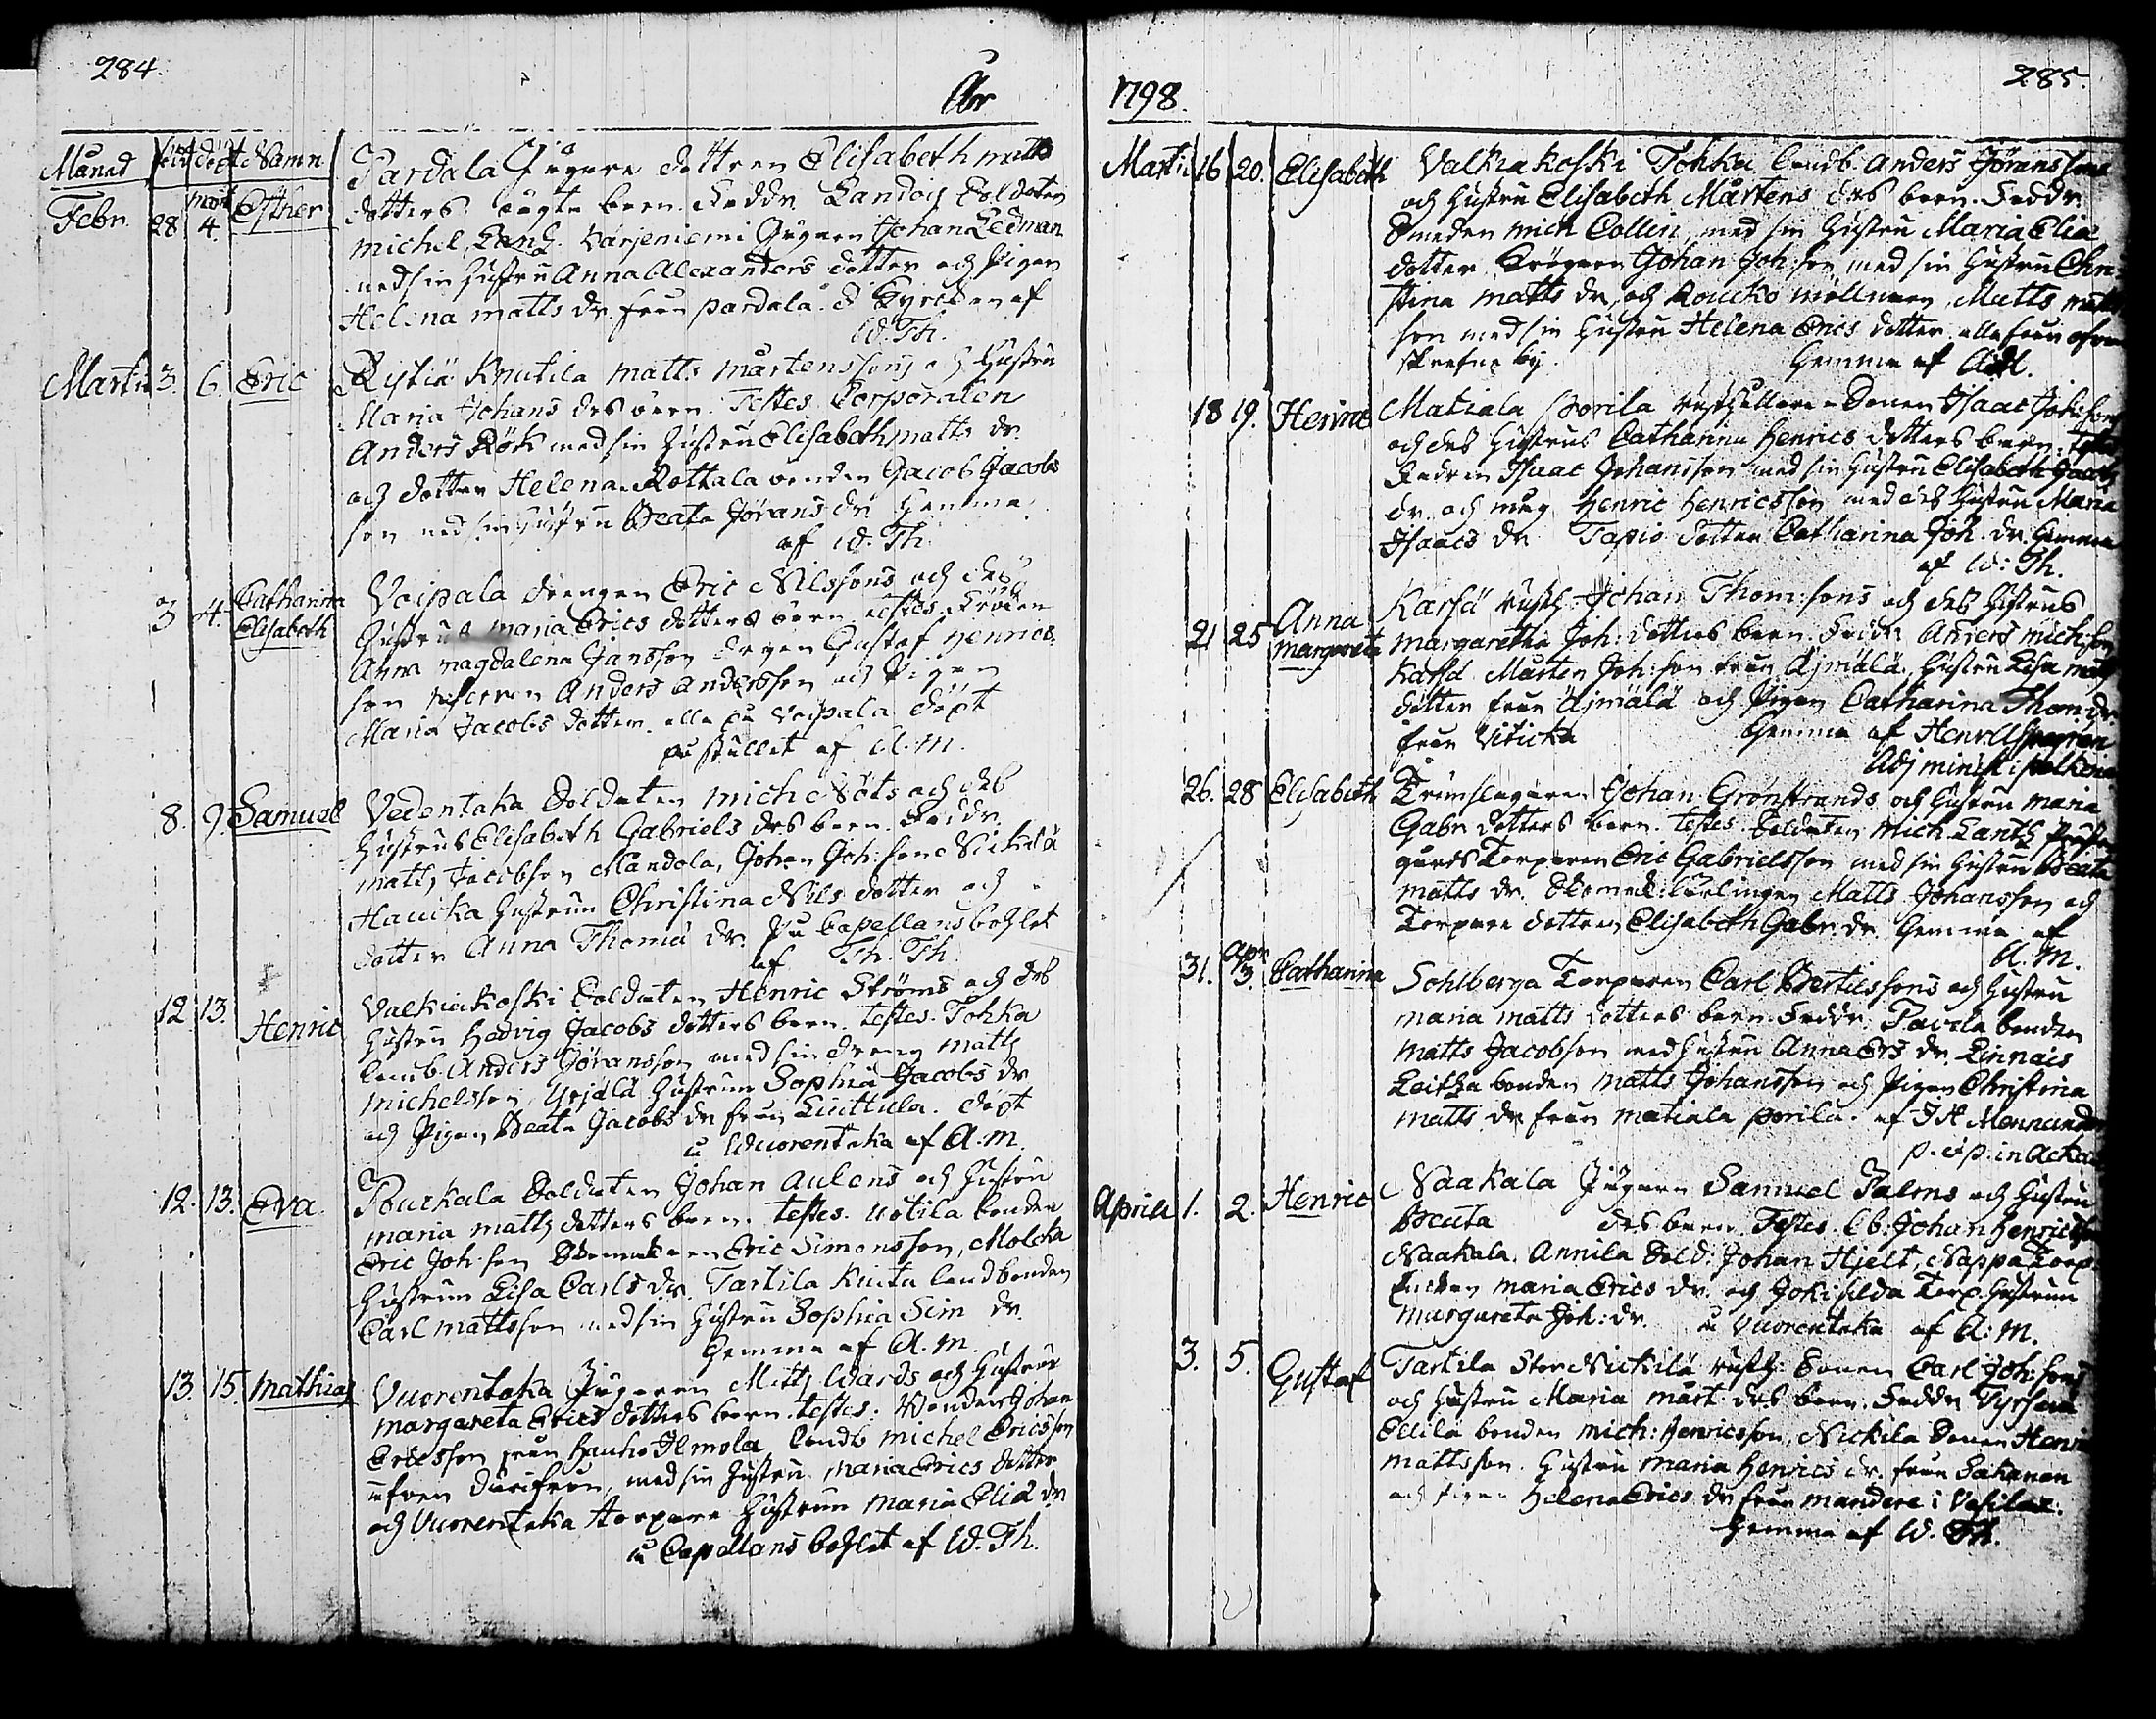 284.
År
Månad född döpt Namn
Febr. 28 mart 4. Esther
Pardala Jugare dottren Elisabeth matts
dotters oägta barn. Faddr. Soldaten
michel Lang. Karjeniemi Johan Ledman
med sin hustru Anna Alexanders dotter och Pigan
Helena matts dr. från pardala. af
W. Th.
Martii 3. 6. Eric
Rystiä Knutila matts mårtenssons och hustru
Maria Johans drs barn. Testes Corporalen
Anders Rök med sin hustru Elisabeth matts dr.
och dotter Helena. Rottala bonden Jacob Jacobs
son med sin hustru Beata Jörans dr. hemma
af W. Th.
3 4. Catharina Elisabeth
Voipala drengen Eric Nilssons och des
hustrus maria Erics dotters barn. testes. Fröken
Anna magdalena Jansson drengen Gustaf Henrics
son Anders andersson och Pigan
Maria Jacobs dotter. alla på Voipala döpt
på stället af A. M.
8. 9. Samuel
Vedentaka Soldaten mich Nöts och des
hustrus Elisabeth Gabriels drs barn. Faddr.
matts Jacobson Mandola, Johan Joh: son
Haucka hustrun Christina Nils dotter och
dotter Anna Thomä dr. på Capellans bohlet
af Th. Th.
12. 13. Henric
Valkiakoski Soldaten Henric Ströms och des
hustru Hedvig Jacobs dotters barn. testes. Tohka
landb. Anders Jöransson med sin dreng matts
michelsson, Yrjälä hustrun Sophia Jacobs dr
och Pigan Beata Jacobs dr från Liuttula. döpt
å Wuorentaka af A. M.
12. 13. Eva.
Pourkala Soldaten Johan aulens och hustru
maria matts dotters barn. testes. Uotila bonden
Eric Joh: son Eric Simonsson, Molcka
hustrun Lisa Carls dr. Tartila Knuta landbonden
Carl mattsson med sin hustru Sophia Sim dr.
hemma af A. M.
13. 15. Mathias
Vuorentaka Jugaren Matts Wards och hustrus
margareta Erics dotters barn. testes. Bonden Johan
Ericsson från Hauho Ilmola, landb michel Ericsson
äfven därifrån, med sin hustru maria Erics dotter
och Vuorentaka torpare hustrun maria Eliä dr
å Capellans bohlet af W. Th.
1798.
285.
Martii 16 20. Elisabeth
Valkiakoski Tohka landb. anders Jöranssons
och hustru Elisabeth Mårtens drs barn. Faddr.
Smeden mich Collin, med sin hustru Maria Eliæ
dotter, Krögaren Johan Joh: son med sin hustru Chri-
stina matts dr, och Roucko möllnaren Matts matts
son med sin hustru Helena Erics dotter alla från ofvan
skrefne by. Hemma af A. M.
18 19. Henric
Matiala Porila rusthållare-Sonen Isaac Joh: sons
och des hustrus Catharina Henrics dotters barn. Testes
Fadren Isaac Johansson med sin hustru Elisabeth Jacobs
dr. och måg Henric Henricsson med des hustru Maria
Isaacs dr Tapio dotter Catharina Joh. dr. hemma
af W: Th.
21 25 Anna Margareta
Karså rusth: Johan Thom: sons och des hustrus
margaretha Joh: dotters barn. Faddr. Anders mich: son
Karså. Mårten Joh: son från Äjmälä, hustru Lisa matts
dotter från Äjmälä och Pigan Catharina Thom: dr.
från Viticka hemma af Henr.
Adj minist:
26. 28 Elisabeth
Trumslagaren Johan Grönstrands och hustru maria
Gabr. dotters barn. testes. Soldaten Mich. Lantz
gårds Torparen Eric Gabrielsson med sin hustru Beata
matts dr. Matts Johansson och
Torpare dottren Elisabeth Gabr. dr. hemma af
A. M.
31. Apr. 3. Catharina
Sohlberga Torparen Carl Bertilssons och hustru
maria matts dotters barn. Faddr. Pavola bonden
matts Jacobson med hustru Anna Ers dr. Linnais
Leitza bonden matts Johansson och Pigan Christina
matts dr från matiala porila. af J H Mennander
p. v: p. in Ackas
Aprill 1. 2. Henric
Naakala Jugaren Samuel Palms och hustru
Beata drs barn. Testes. lb. Johan Henricsson
Naakala. Annila Sold: Johan Hjelt, Nappa Torp
enckan maria Erics dr. och Jokisilda Torp. hustrun
margareta Joh: dr. å Vuorentaka af A: M.
3. 5. Gustaf
Tartila Stor Nickilä rusth: Sonen Carl Joh: sons
och hustru Maria mårt. drs barn. Faddr.
Eklila bonden mich: Henricsson, Nickila Sonen Henric
mattsson. Hustru Maria Henrics dr. från Sakanen
och pigan Helena Erics dr från mandere i Vesilax.
Hemma af W. Th.